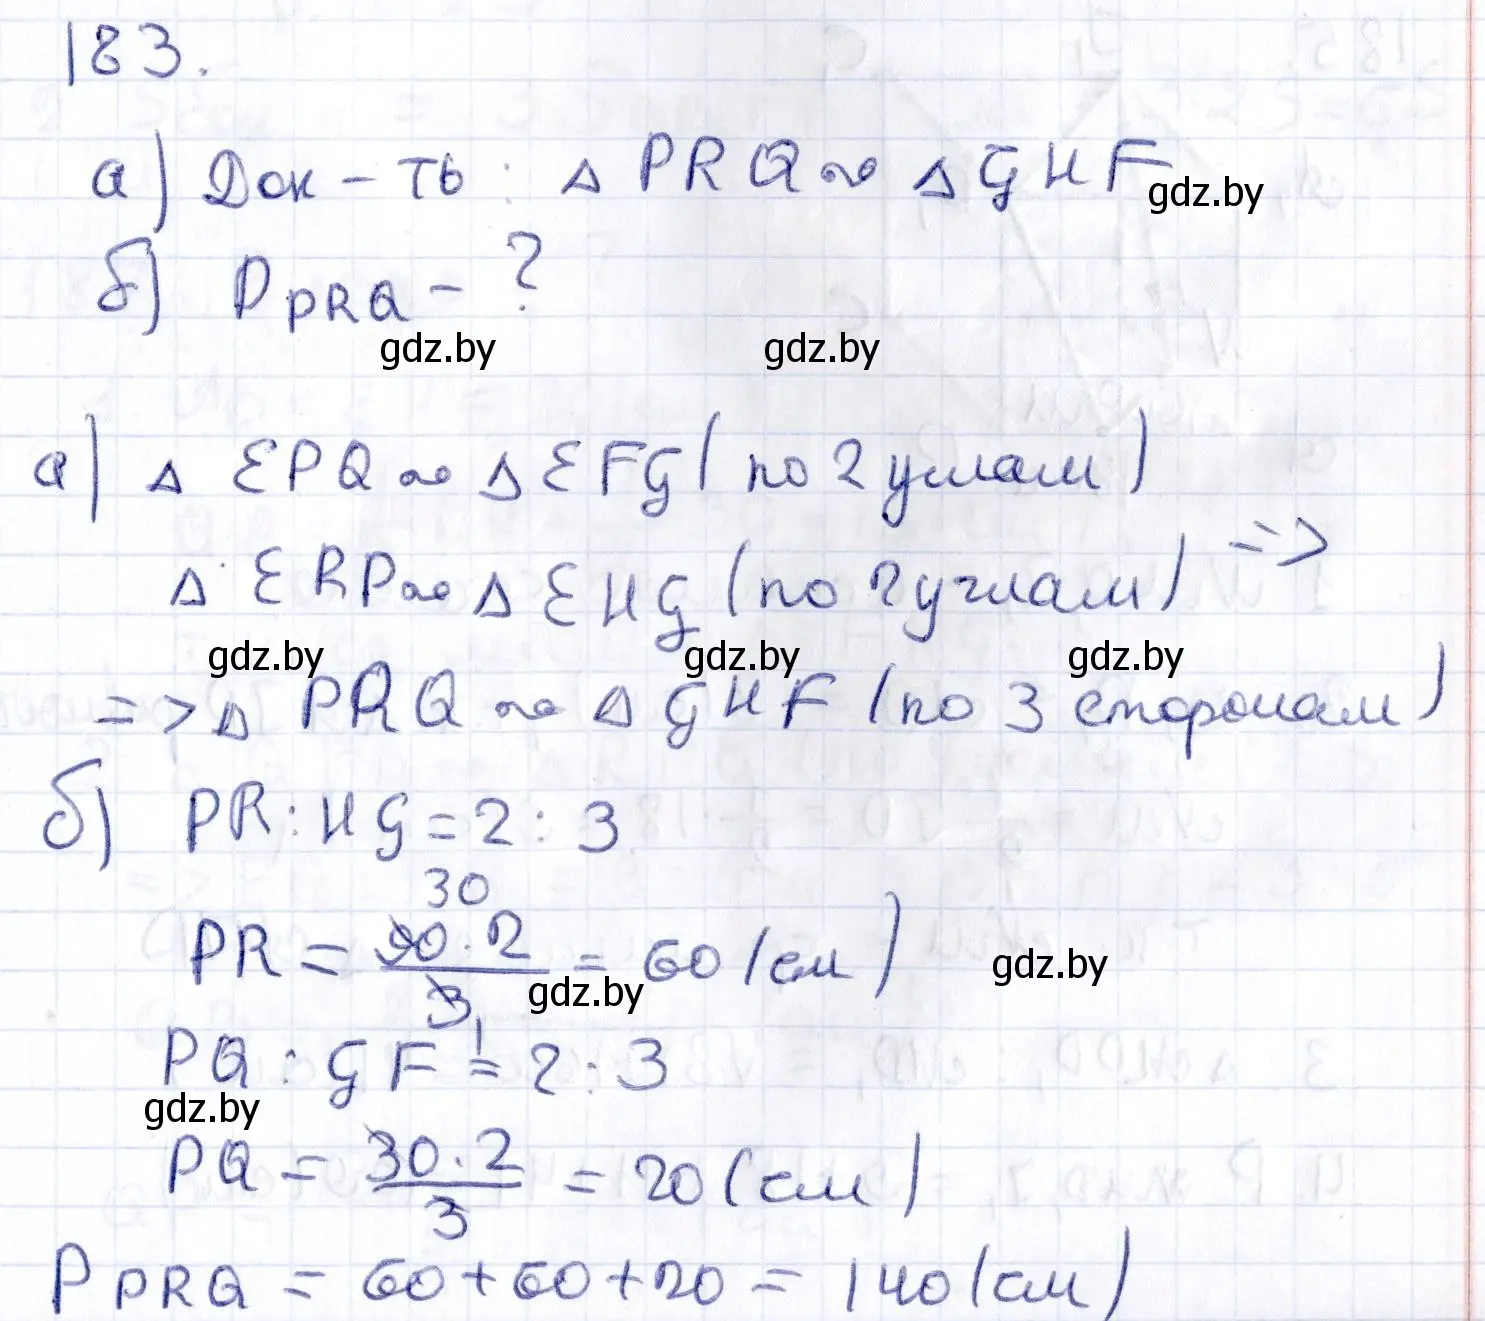 183.
а) Док-ть: △ PRQ ∾ △ GHF
gdz.by
б) P PRQ - ?
gdz.by gdz.by
а) △ EPQ ∾ △ EFG (по 2 углам)
△ ERP ∾ △ EHG (по 2 углам) =>
gdz.by gdz.by gdz.by
=> △ PRQ ∾ △ GHF (по 3 сторонам)
б) PR : HG = 2 : 3
30
PR = 90 · 2 / 3 = 60 (см)
gdz.by gdz.by
1
PQ : GF = 2 : 3
gdz.by
PQ = 30 · 2 / 3 = 20 (см)
P PRQ = 60 + 60 + 20 = 140 (см)